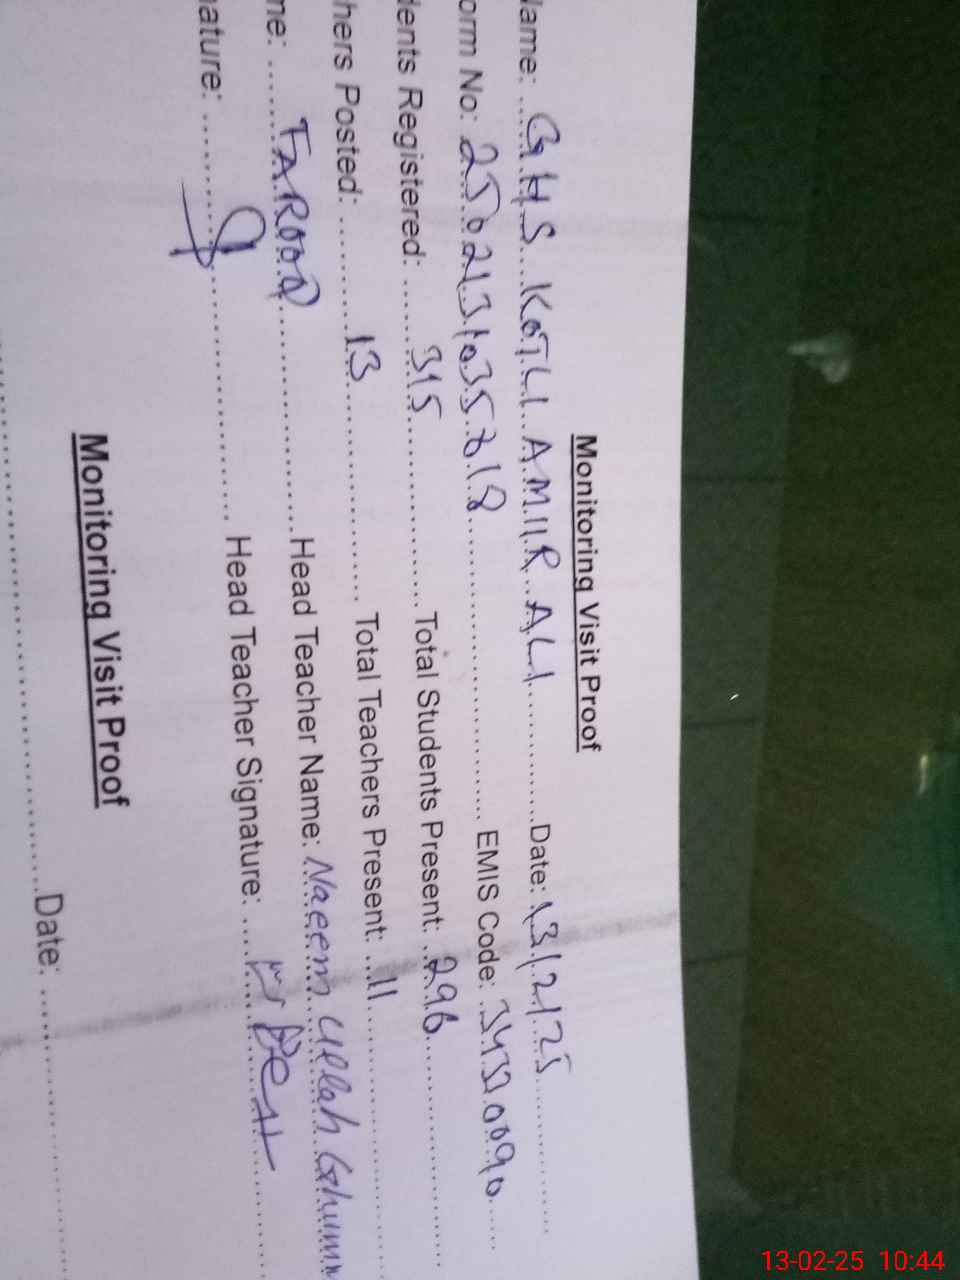 Monitoring Visit Proof
Name: GHS KOTLI AMIR ALI Date: 13/2/25
orm No: EMIS Code:
dents Registered: 315 Total Students Present: 296
hers Posted: 13 Total Teachers Present: 11
me: FAROOQ Head Teacher Name: Naeem Ullah Ghumm
nature: Head Teacher Signature:
Monitoring Visit Proof
Date:
13-02-25 10:44